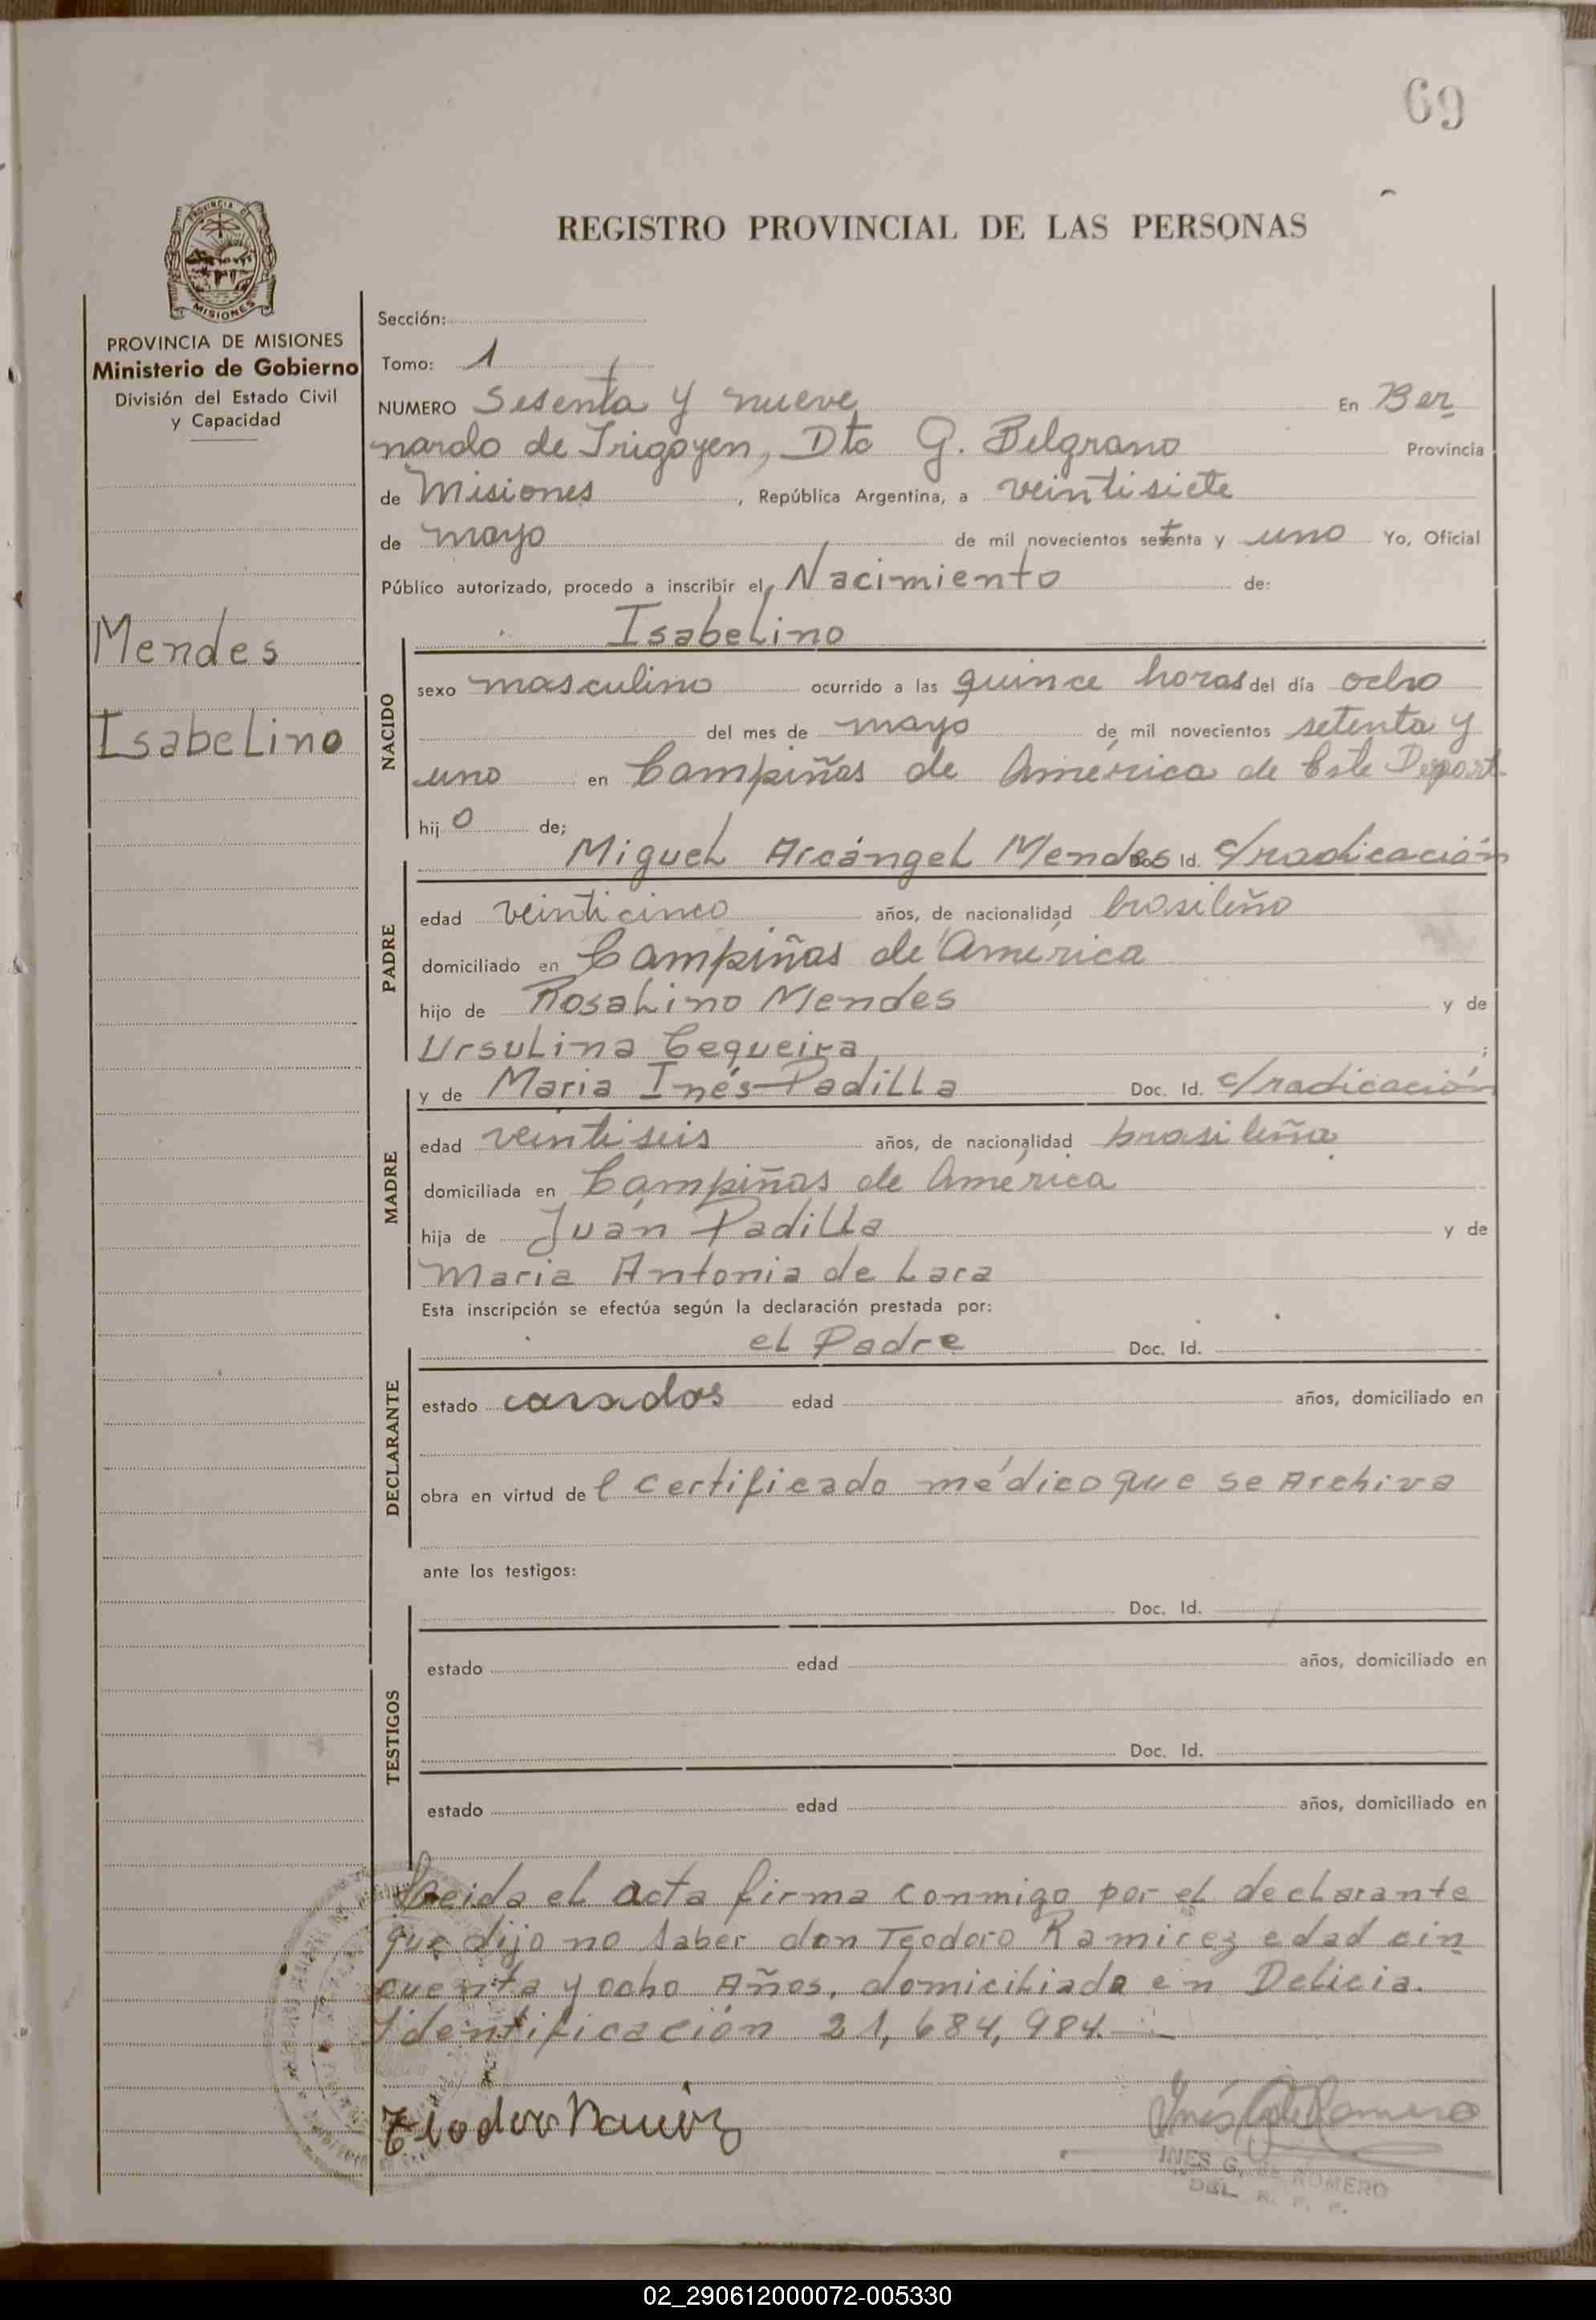 69
REGISTRO PROVINCIAL DE LAS PERSONAS
PROVINCIA DE
MISIONES
PROVINCIA DE MISIONES
Ministerio de Gobierno
División del Estado Civil
y Capacidad
Mendes
Isabelino
Sección:
Tomo: 1
NUMERO Sesenta y nueve En Ber
nardo de Irigoyen, Dto G. Belgrano Provincia
de Misiones, República Argentina, a veintisiete
de mayo de mil novecientos setenta y uno Yo, Oficial
Público autorizado, procedo a inscribir el Nacimiento de:
Isabelino
NACIDO
sexo masculino ocurrido a las quince horas del día ocho
del mes de mayo de mil novecientos setenta y
uno en Campiñas de América de Este Depart.
hijo de;
Miguel Arcángel Mendes Doc. Id. c/radicación
PADRE
edad veinticinco años, de nacionalidad brasileño
domiciliado en Campiñas de América
hijo de Rosalino Mendes y de
Ursulina Cequeira;
y de Maria Inés Padilla Doc. Id. c/radicación
MADRE
edad veintiseis años, de nacionalidad brasileña
domiciliada en Campiñas de América
hija de Juan Padilla y de
Maria Antonia de Lara
Esta inscripción se efectúa según la declaración prestada por:
el Padre Doc. Id.
DECLARANTE
estado casados edad años, domiciliado en
obra en virtud del certificado médico que se Archiva
ante los testigos:
Doc. Id.
TESTIGOS
estado edad años, domiciliado en
Doc. Id.
estado edad años, domiciliado en
Leida el acta firma conmigo por el declarante
que dijo no saber don Teodoro Ramirez edad cin
cuenta y ocho Años, domiciliado en Delicia.
Identificación 21,684,984.
INES G. de ROMERO
DEL R. P. P.
02_290612000072-005330